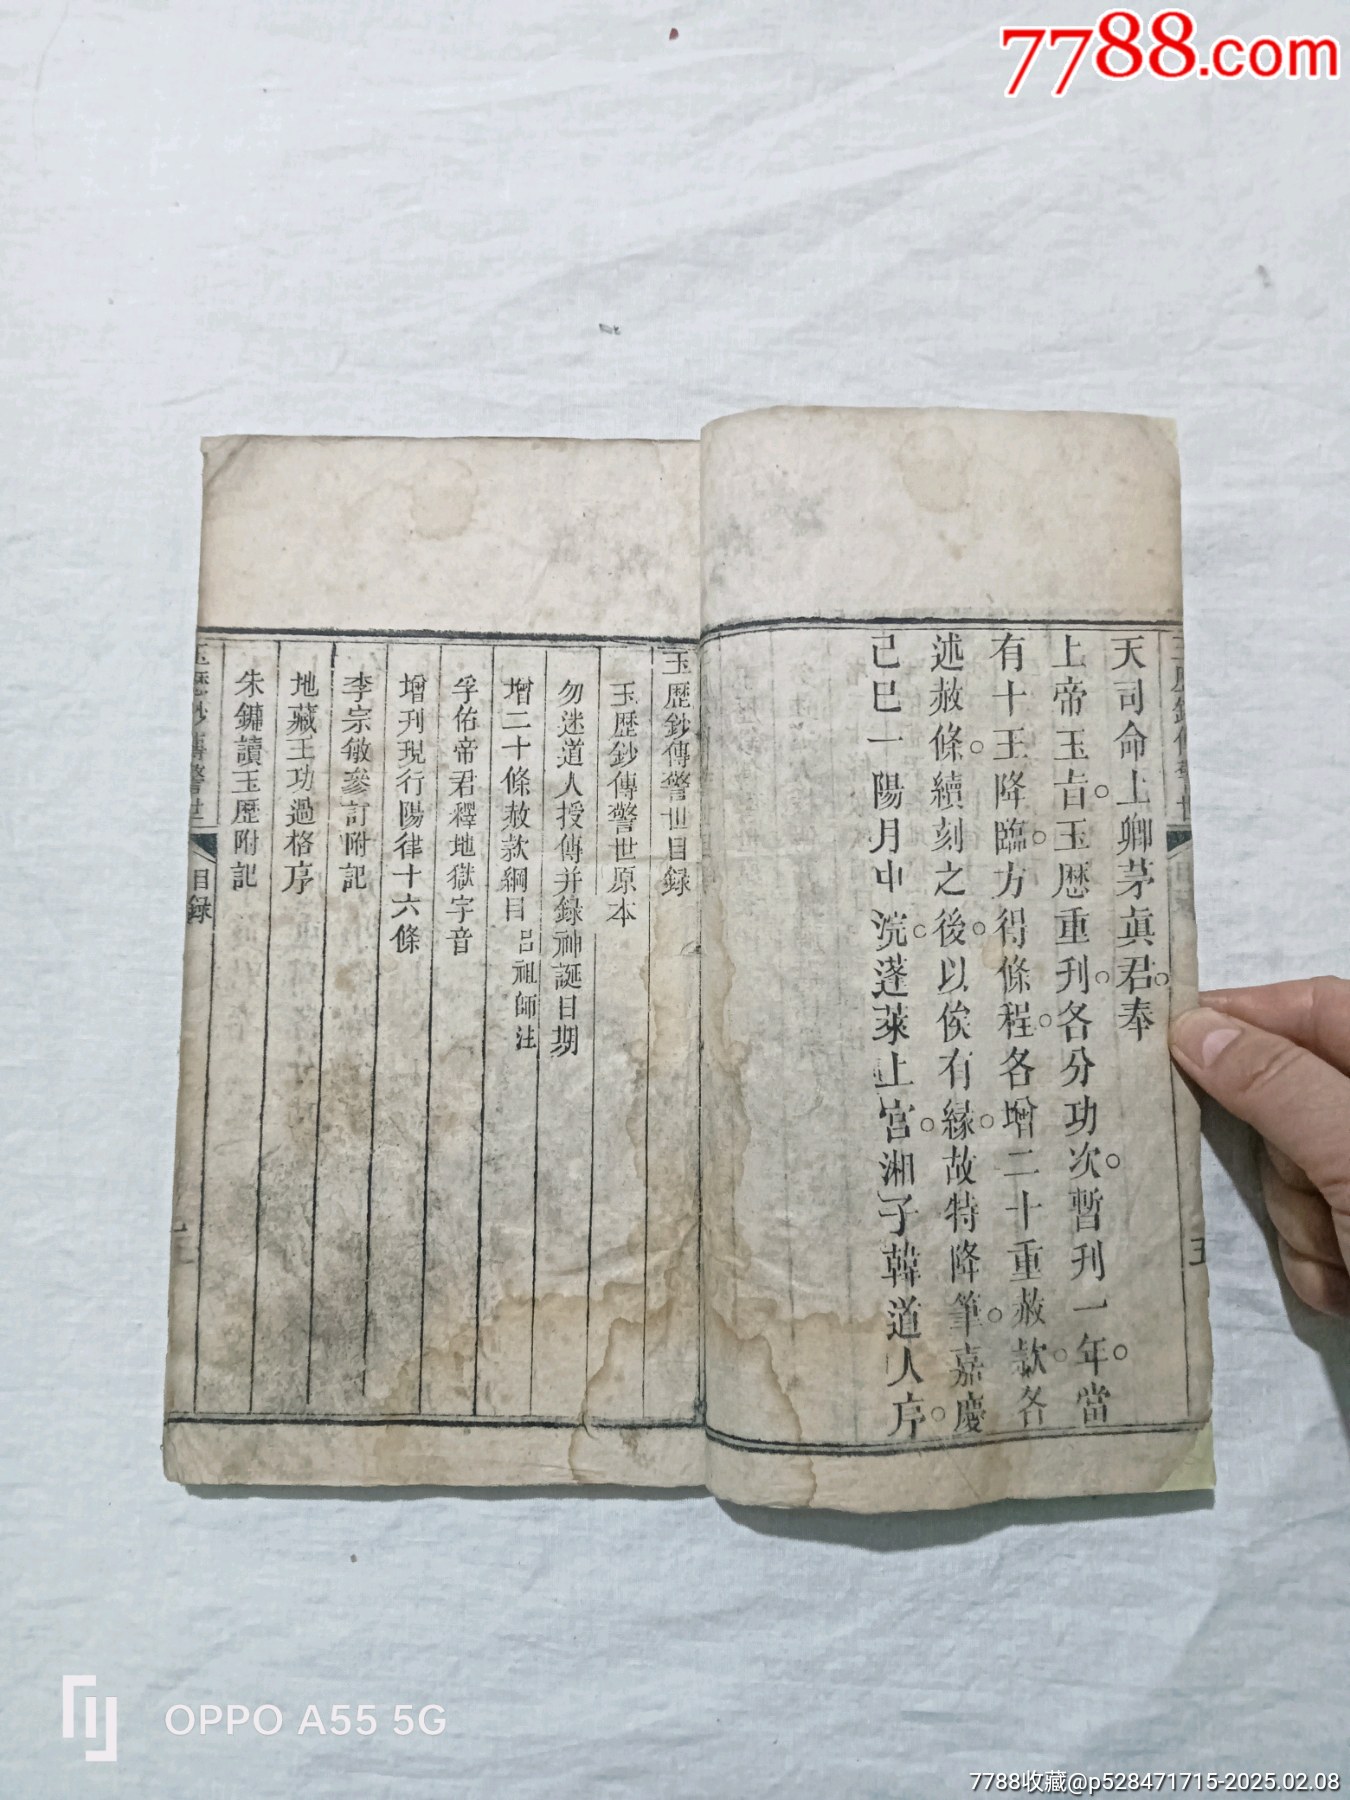 7788.com
天司命上卿茅真君奉
上帝玉旨玉歷重刊各分功次暫刊一年當
有十王降臨方得條程各增二十重赦款各
述赦條續刻之後以俟有緣故特降筆嘉慶
己巳一陽月中浣蓬萊上宮湘子韓道人序
五
玉歷鈔傳警世目録
玉歷鈔傳警世原本
勿迷道人授傳并録神誕日期
增二十條赦款綱目 呂祖師注
孚佑帝君釋地獄字音
增刊現行陽律十六條
李宗敏參訂附記
地藏王功過格序
朱鏞讀玉歷附記
玉歷鈔傳警世 目録
OPPO A55 5G
7788收藏@p528471715-2025.02.08